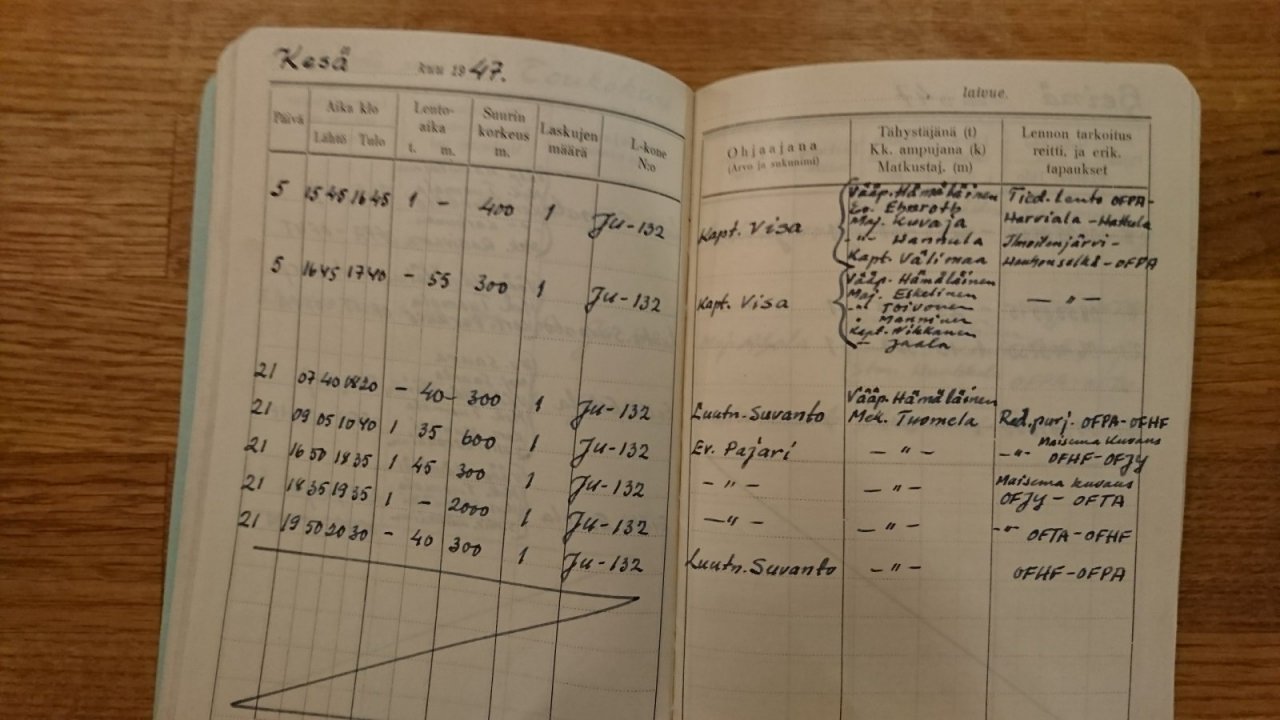 Kesä kuu 1947.
Päivä
Aika klo
Lähtö Tulo
Lento-
aika
t. m.
Suurin
korkeus
m.
Laskujen
määrä
L-kone
N:o
5 15 45 16 45 1 - 400 1 Ju-132
5 16 45 17 40 - 55 300 1 Ju-132
21 07 40 08 20 - 40 300 1 Ju-132
21 09 05 10 40 1 35 600 1 Ju-132
21 16 50 18 35 1 45 300 1 Ju-132
21 18 35 19 35 1 - 2000 1 Ju-132
21 19 50 20 30 - 40 300 1 Ju-132
laivue.
Ohjaajana
(Arvo ja sukunimi)
Tähystäjänä (t)
Kk. ampujana (k)
Matkustaj. (m)
Lennon tarkoitus
reitti, ja erik.
tapaukset
Kapt. Visa
Vääp. Hämäläinen
Ev. Ehnrooth
Maj. Kuvaja
-"- Hannula
Kapt. Välimaa
Tied. lento OFPA-
Harviala - Hattula
Ilmoilanjärvi-
OFPA
Kapt. Visa
Vääp. Hämäläinen
Maj. Eskelinen
-"- Toivonen
" Manninen
Kapt. Nikkanen
-"- Jaala
- " -
Luutn. Suvanto
Vääp. Hämäläinen
Mek. Tuomela
OFPA-OFHF
Ev. Pajari
- " -
Maisema kuvaus
-"- OFHF-OFJY
- " -
- " -
Maisema kuvaus
OFJY - OFTA
- " -
- " -
-"- OFTA-OFHF
Luutn. Suvanto
- " -
OFHF-OFPA